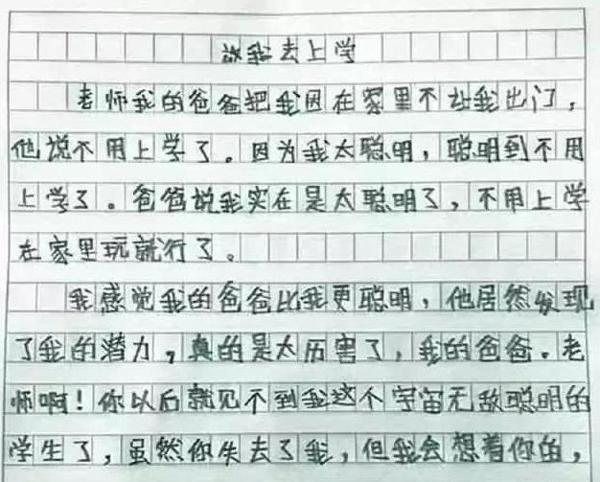 放我去上学
老师我的爸爸把我困在家里不让我出门，
他说不用上学了。因为我太聪明，聪明到不用
上学了。爸爸说我实在是太聪明了，不用上学
在家里玩就行了。
我感觉我的爸爸比我更聪明，他居然发现
了我的潜力，真的是太历害了，我的爸爸。老
师啊！你以后就见不到我这个宇宙无敌聪明的
学生了，虽然你失去了我，但我会想着你的，